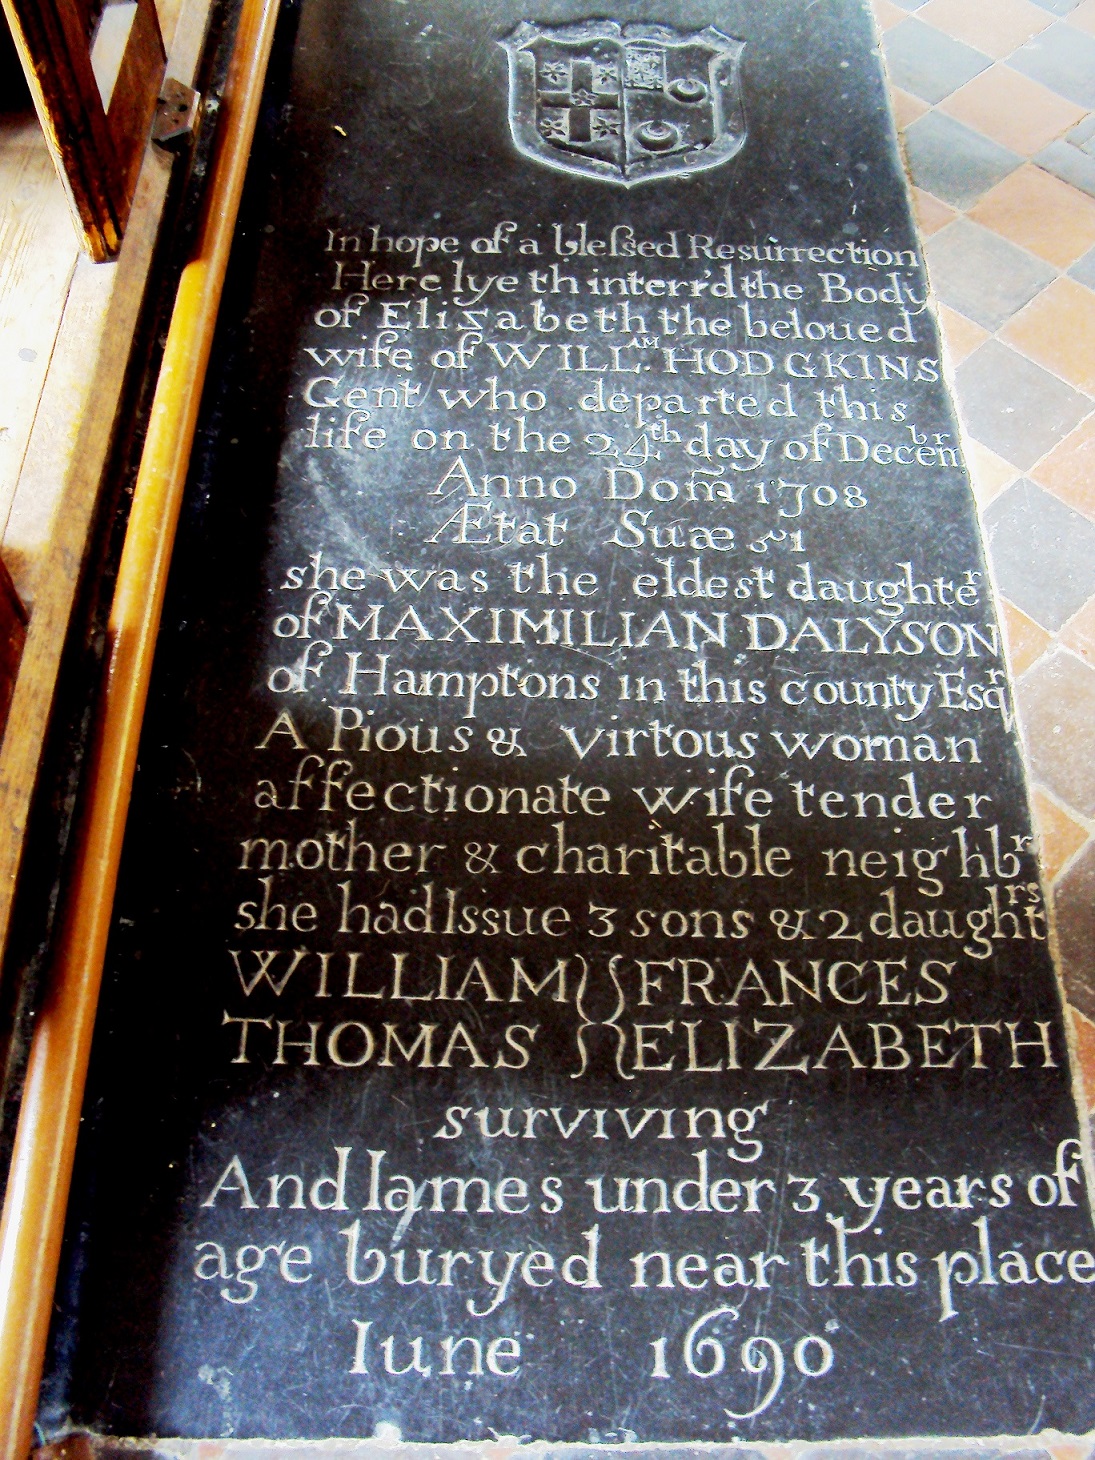 In hope of a bleſsed Resurrection
Here lye's the interr'd the Body
of Elizabeth the beloued
wife of WILL.ᴬᴹ HODGKINS
Gent who departed this
life on the 24th day of Decembr
Anno Dom̄ 1708
Ætat Suæ 51
she was the eldest daughter
of MAXIMILLIAN DALYSON
of Hamptons in this county Esqr
A Pious & virtous woman
affectionate wife tender
mother & charitable neighbr
she had Issue 3 sons & 2 daughtrs
WILLIAM FRANCES
THOMAS ELIZABETH
surviving
And Iames under 3 years of
age buryed near this place
Iune 1690